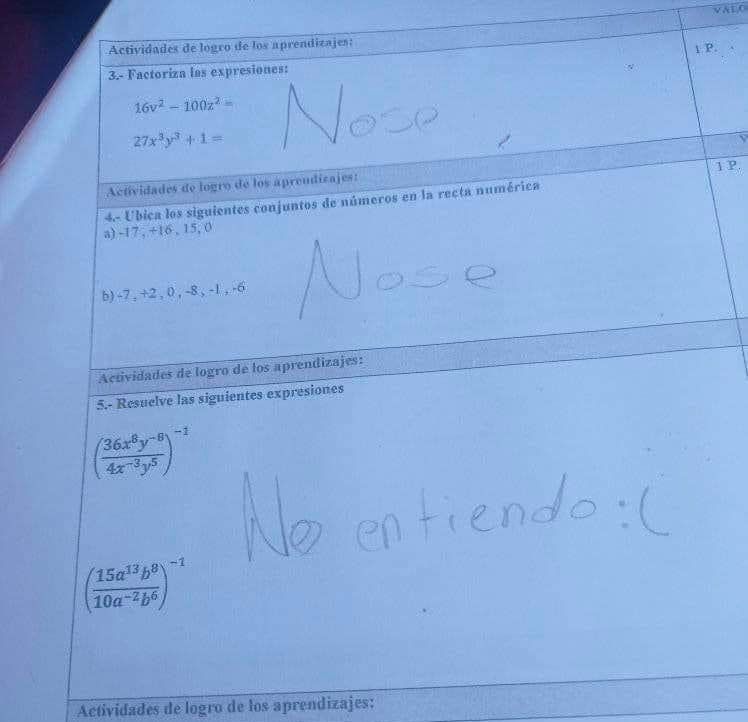 VALO
Actividades de logro de los aprendizajes:
1 P.
3.- Factoriza las expresiones:
16v² − 100z² =
Nose
27x³y³ + 1 =
Actividades de logro de los aprendizajes:
1 P.
4.- Ubica los siguientes conjuntos de números en la recta numérica
a) -17 , +16 , 15, 0
Nose
b) -7 , +2 , 0 , -8 , -1 , -6
Actividades de logro de los aprendizajes:
5.- Resuelve las siguientes expresiones
(36x⁸y⁻⁸ / 4x⁻³y⁵)⁻¹
No entiendo :(
(15a¹³b⁸ / 10a⁻²b⁶)⁻¹
Actividades de logro de los aprendizajes: